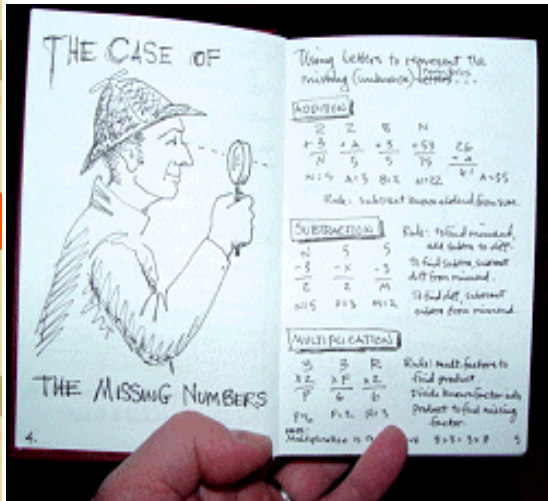 THE CASE OF
THE MISSING NUMBERS
4.
Using letters to represent the
missing (unknown) letters...
ADDITION
2 2 B N
+3 +A +3 +53 26
N 5 5 75
N=5 A=3 B=2 N=22
Rule: subtract known addend from sum.
SUBTRACTION
N 5 5
-3 -X -3
2 2 M
N=5 M=2
Rule: to find minuend,
add subtra to diff.
To find subtra, subtract
diff from minuend.
To find diff, subtract
subtra from minuend.
MULTIPLICATION
3 3 R
x2 xP x2
P 6 6
P=6 P=2 R=3
Rule: mult. factors to
find product.
Divide known factor into
product to find missing
factor.
Multiplication is
5